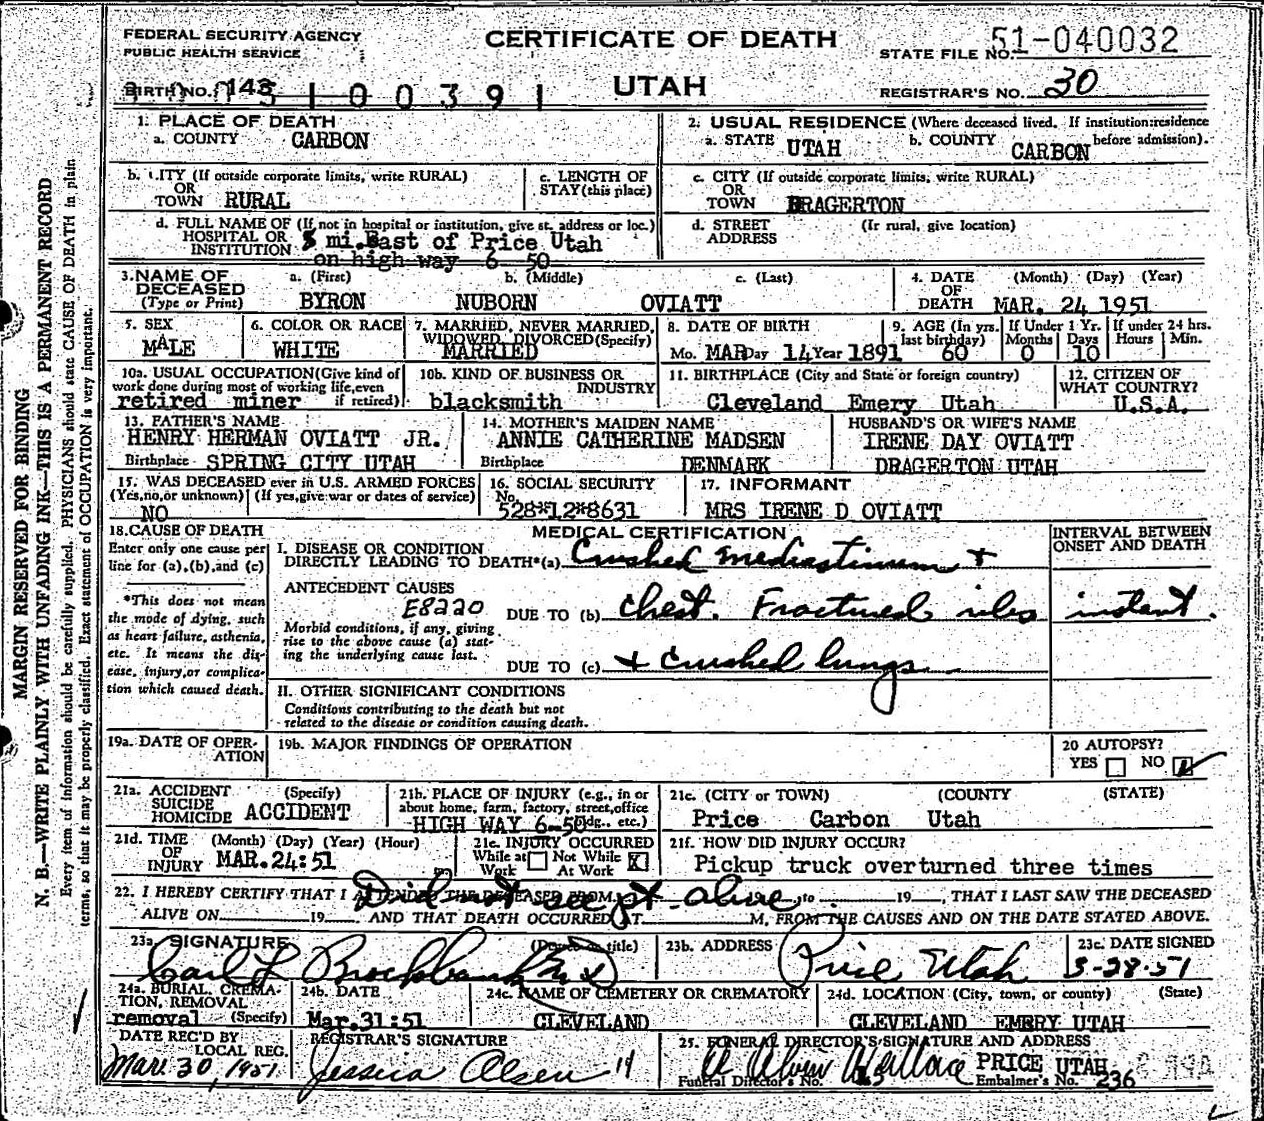 FEDERAL SECURITY AGENCY
PUBLIC HEALTH SERVICE
CERTIFICATE OF DEATH
UTAH
STATE FILE NO. 51-040032
BIRTH NO. 143
REGISTRAR'S NO. 30
MARGIN RESERVED FOR BINDING
N. B.—WRITE PLAINLY WITH UNFADING INK—THIS IS A PERMANENT RECORD
Every item of information should be carefully supplied. PHYSICIANS should state CAUSE OF DEATH in plain
terms, so that it may be properly classified. Exact statement of OCCUPATION is very important.
1. PLACE OF DEATH
a. COUNTY CARBON
2. USUAL RESIDENCE (Where deceased lived. If institution: residence before admission).
a. STATE UTAH b. COUNTY CARBON
b. CITY (If outside corporate limits, write RURAL)
OR
TOWN RURAL
c. LENGTH OF
STAY (this place)
c. CITY (If outside corporate limits, write RURAL)
OR
TOWN DRAGERTON
d. FULL NAME OF (If not in hospital or institution, give st. address or loc.)
HOSPITAL OR
INSTITUTION mi. East of Price Utah
on high way 6-50
d. STREET (If rural, give location)
ADDRESS
3. NAME OF DECEASED (Type or Print)
a. (First) b. (Middle) c. (Last)
BYRON NUBORN OVIATT
4. DATE OF DEATH (Month) (Day) (Year)
MAR. 24 1951
5. SEX
MALE
6. COLOR OR RACE
WHITE
7. MARRIED, NEVER MARRIED, WIDOWED, DIVORCED (Specify)
MARRIED
8. DATE OF BIRTH
Mo. MAR Day 14 Year 1891
9. AGE (In yrs. last birthday) 60
If Under 1 Yr. Months 0 Days 10
If under 24 hrs. Hours Min.
10a. USUAL OCCUPATION (Give kind of work done during most of working life, even if retired)
retired miner
10b. KIND OF BUSINESS OR INDUSTRY
blacksmith
11. BIRTHPLACE (City and State or foreign country)
Cleveland Emery Utah
12. CITIZEN OF WHAT COUNTRY?
U.S.A.
13. FATHER'S NAME
HENRY HERMAN OVIATT JR.
Birthplace SPRING CITY UTAH
14. MOTHER'S MAIDEN NAME
ANNIE CATHERINE MADSEN
Birthplace DENMARK
HUSBAND'S OR WIFE'S NAME
IRENE DAY OVIATT
DRAGERTON UTAH
15. WAS DECEASED ever in U.S. ARMED FORCES
(Yes, no, or unknown) (If yes, give war or dates of service)
NO
16. SOCIAL SECURITY No.
528*12*8631
17. INFORMANT
MRS IRENE D OVIATT
18. CAUSE OF DEATH
Enter only one cause per
line for (a), (b), and (c)
*This does not mean
the mode of dying, such
as heart failure, asthenia,
etc. It means the dis-
ease, injury, or complica-
tion which caused death.
MEDICAL CERTIFICATION
INTERVAL BETWEEN
ONSET AND DEATH
I. DISEASE OR CONDITION
DIRECTLY LEADING TO DEATH*(a) Crushed mediastinum +
ANTECEDENT CAUSES
E8220
DUE TO (b) chest. Fractured ribs instant.
Morbid conditions, if any, giving
rise to the above cause (a) stat-
ing the underlying cause last.
DUE TO (c) + crushed lungs
II. OTHER SIGNIFICANT CONDITIONS
Conditions contributing to the death but not
related to the disease or condition causing death.
19a. DATE OF OPER-
ATION
19b. MAJOR FINDINGS OF OPERATION
20 AUTOPSY?
YES NO
21a. ACCIDENT (Specify)
SUICIDE
HOMICIDE ACCIDENT
21b. PLACE OF INJURY (e.g., in or
about home, farm, factory, street, office
bldg., etc.)
HIGH WAY 6-50
21c. (CITY or TOWN) (COUNTY (STATE)
Price Carbon Utah
21d. TIME (Month) (Day) (Year) (Hour)
OF
INJURY MAR.24:51 m.
21e. INJURY OCCURRED
While at Work Not While At Work X
21f. HOW DID INJURY OCCUR?
Pickup truck overturned three times
22. I HEREBY CERTIFY THAT I ATTENDED THE DECEASED FROM to 19 , THAT I LAST SAW THE DECEASED
Did not see pt. alive
ALIVE ON 19 , AND THAT DEATH OCCURRED AT M, FROM THE CAUSES AND ON THE DATE STATED ABOVE.
23a. SIGNATURE (Degree or title)
Carl L Brockbank MD
23b. ADDRESS
Price Utah
23c. DATE SIGNED
3-28-51
24a. BURIAL, CREMA-
TION, REMOVAL
removal (Specify)
24b. DATE
Mar.31:51
24c. NAME OF CEMETERY OR CREMATORY
CLEVELAND
24d. LOCATION (City, town, or county) (State)
CLEVELAND EMERY UTAH
DATE REC'D BY
LOCAL REG.
Mar. 30, 1951
REGISTRAR'S SIGNATURE
Jessica Olsen
25. FUNERAL DIRECTOR'S SIGNATURE AND ADDRESS
Wallace PRICE UTAH
Funeral Director's No. Embalmer's No. 236